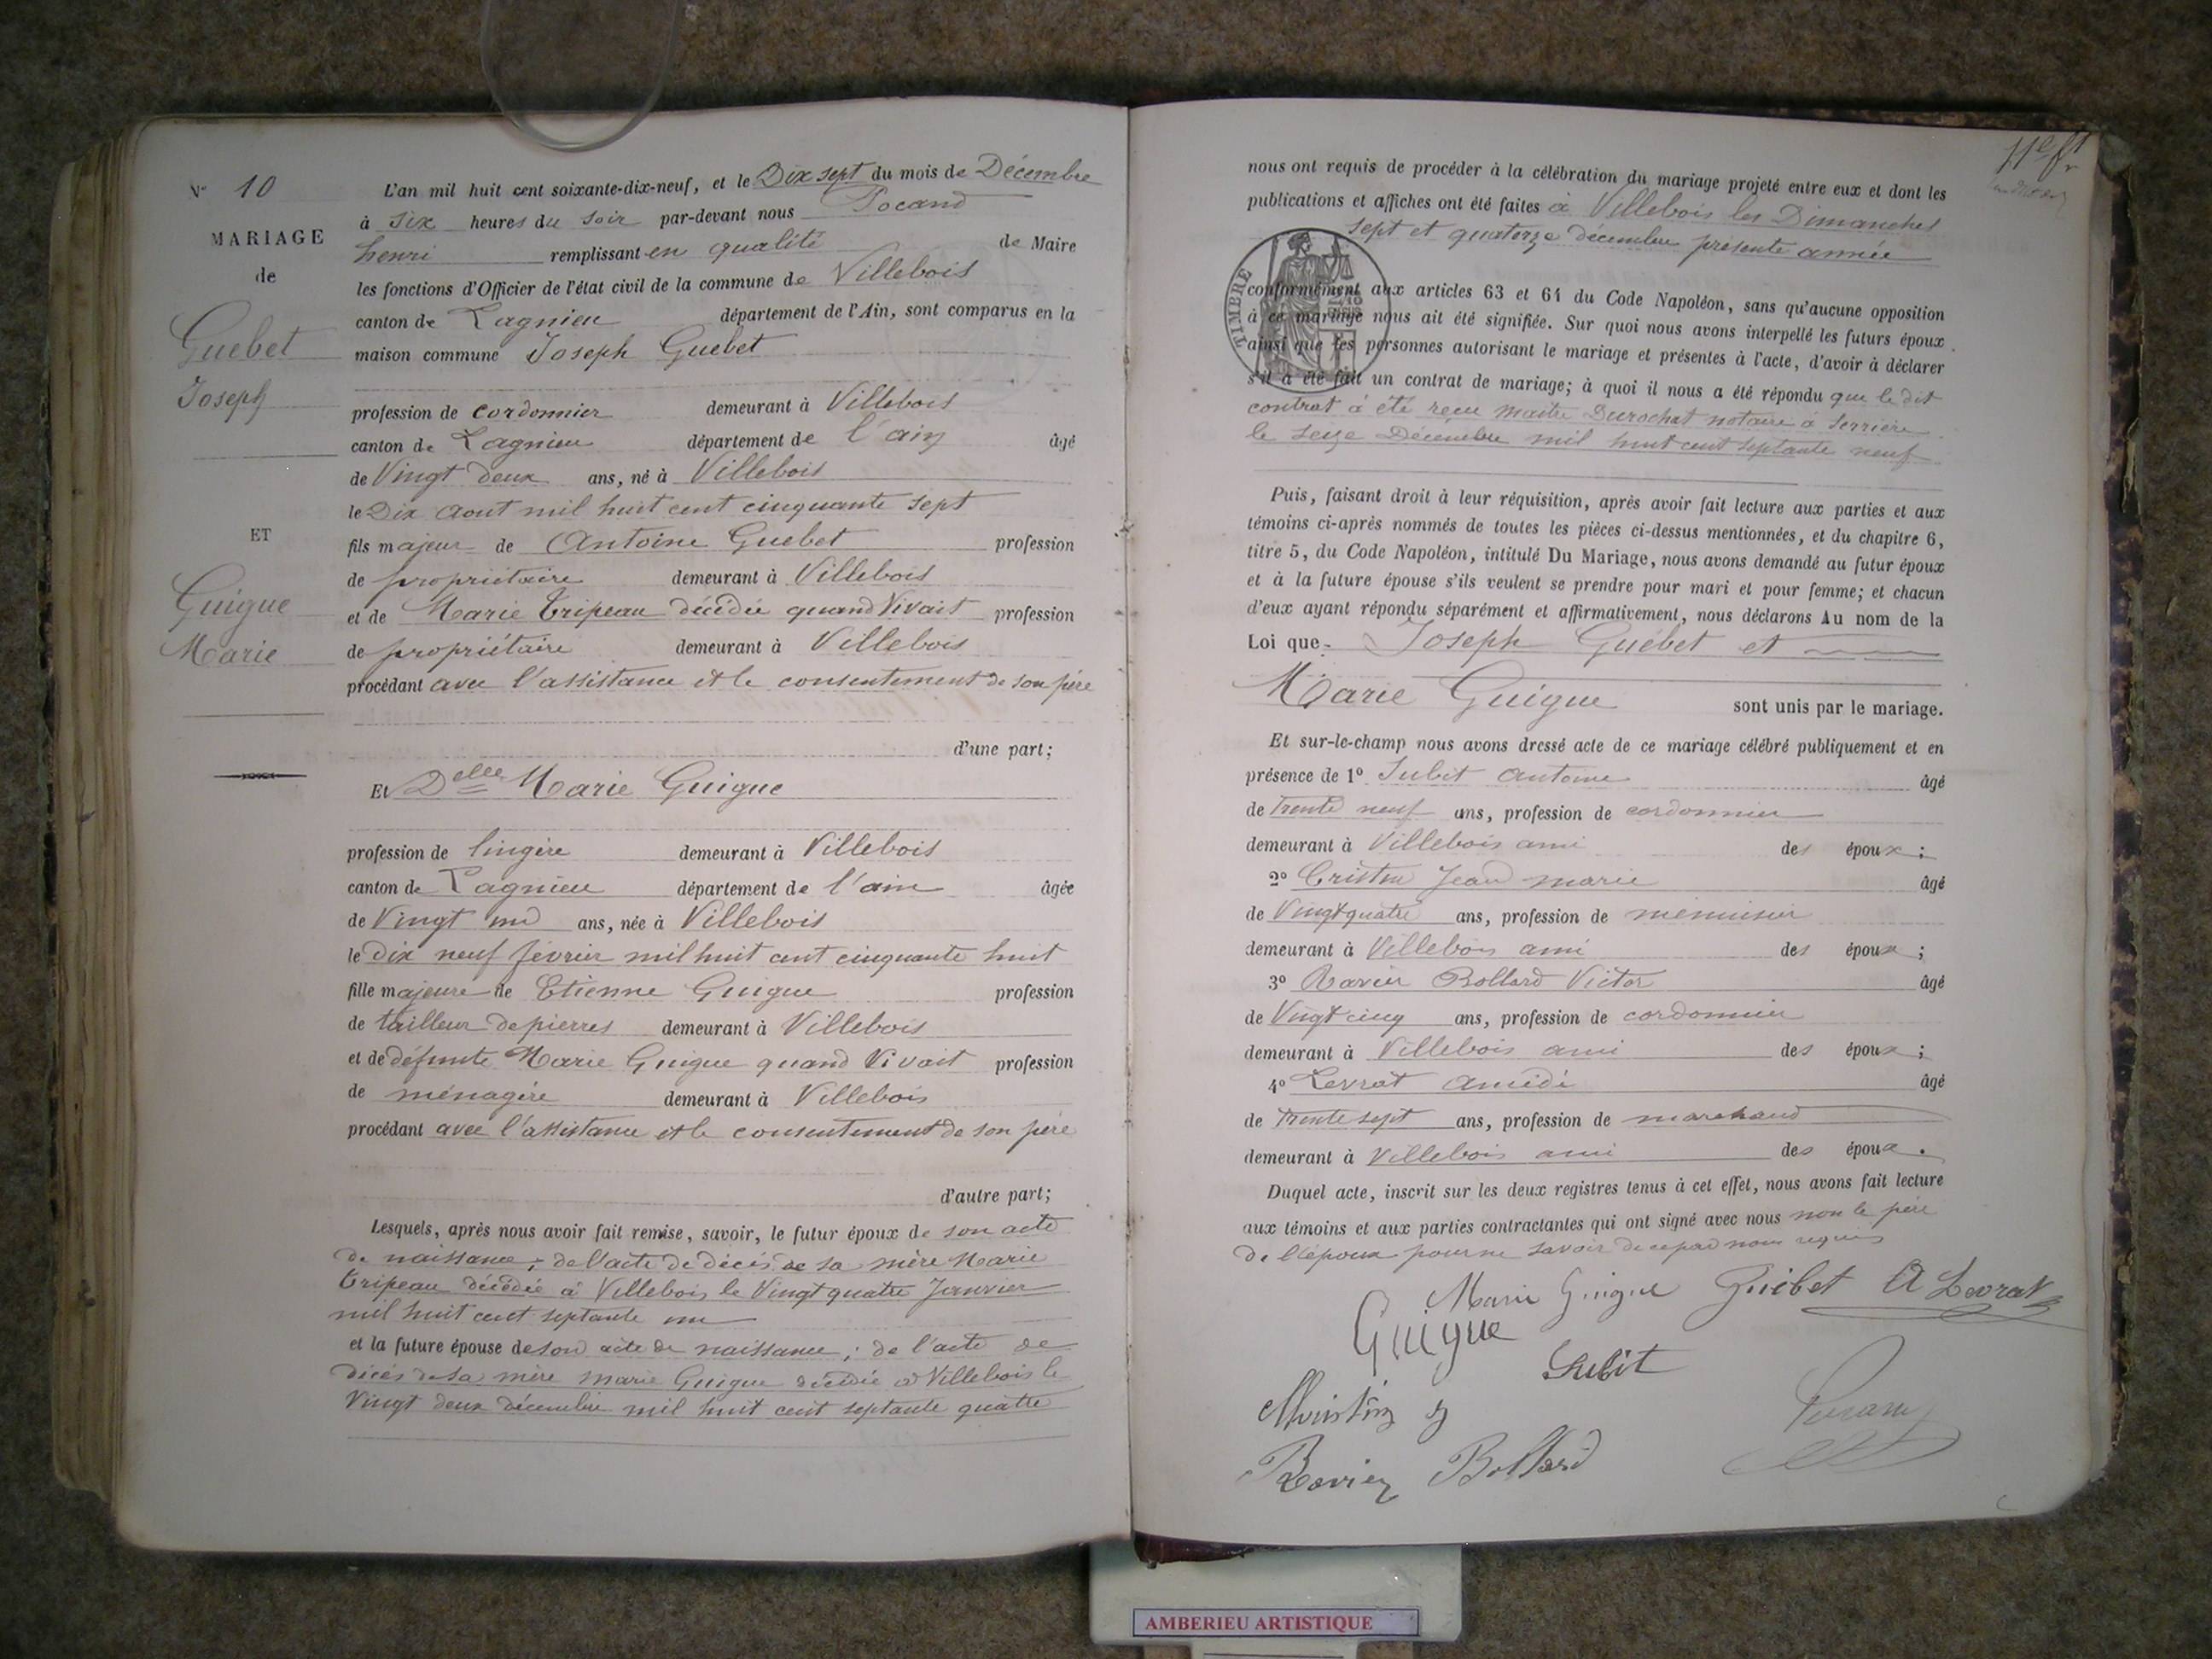 N° 10
MARIAGE
de
Guebet
Joseph
ET
Guigue
Marie
L'an mil huit cent soixante-dix-neuf, et le Dix sept du mois de Décembre
à Six heures du Soir par-devant nous Pocand
henri remplissant en qualité de Maire
les fonctions d'Officier de l'état civil de la commune de Villebois
canton de Lagnieu département de l'Ain, sont comparus en la
maison commune Joseph Guebet
profession de cordonnier demeurant à Villebois
canton de Lagnieu département de l'ain âgé
de Vingt deux ans, né à Villebois
le Dix Aout mil huit cent cinquante sept
fils majeur de Antoine Guebet profession
de propriétaire demeurant à Villebois
et de Marie Tripeau décédée quand Vivait profession
de propriétaire demeurant à Villebois
procédant avec l'assistance et le consentement de son père
d'une part;
Et Delle Marie Guigue
profession de lingère demeurant à Villebois
canton de Lagnieu département de l'ain âgée
de Vingt un ans, née à Villebois
le dix neuf février mil huit cent cinquante huit
fille majeure de Etienne Guigue profession
de tailleur de pierres demeurant à Villebois
et de défunte Marie Guigue quand Vivait profession
de ménagère demeurant à Villebois
procédant avec l'assistance et le consentement de son père
d'autre part;
Lesquels, après nous avoir fait remise, savoir, le futur époux de son acte
de naissance; de l'acte de décès de sa mère Marie
Tripeau décédée à Villebois le Vingt quatre Janvier
mil huit cent septante un
et la future épouse de son acte de naissance; de l'acte de
décès de sa mère Marie Guigue décédée à Villebois le
Vingt deux décembre mil huit cent septante quatre
nous ont requis de procéder à la célébration du mariage projeté entre eux et dont les
publications et affiches ont été faites à Villebois les Dimanches
sept et quatorze décembre présente année
TIMBRE
conformément aux articles 63 et 64 du Code Napoléon, sans qu'aucune opposition
à ce mariage nous ait été signifiée. Sur quoi nous avons interpellé les futurs époux
ainsi que les personnes autorisant le mariage et présentes à l'acte, d'avoir à déclarer
s'il a été fait un contrat de mariage; à quoi il nous a été répondu que le dit
contrat à été reçu Maitre Durochat notaire à Serrière
le Seize Décembre mil huit cent septante neuf
Puis, faisant droit à leur réquisition, après avoir fait lecture aux parties et aux
témoins ci-après nommés de toutes les pièces ci-dessus mentionnées, et du chapitre 6,
titre 5, du Code Napoléon, intitulé Du Mariage, nous avons demandé au futur époux
et à la future épouse s'ils veulent se prendre pour mari et pour femme; et chacun
d'eux ayant répondu séparément et affirmativement, nous déclarons Au nom de la
Loi que Joseph Guebet et
Marie Guigue sont unis par le mariage.
Et sur-le-champ nous avons dressé acte de ce mariage célébré publiquement et en
présence de 1° Subit Antoine âgé
de Trente neuf ans, profession de cordonnier
demeurant à Villebois ami des époux;
2° Jean marie âgé
de Vingt quatre ans, profession de menuisier
demeurant à Villebois ami des époux;
3° Ravier Bollard Victor âgé
de Vingt cinq ans, profession de cordonnier
demeurant à Villebois ami des époux;
4° Levrat Amédé âgé
de Trente sept ans, profession de marchand
demeurant à Villebois ami des époux.
Duquel acte, inscrit sur les deux registres tenus à cet effet, nous avons fait lecture
aux témoins et aux parties contractantes qui ont signé avec nous non le père
de l'époux pour ne savoir de ce par nous requis
Marie Guigue Guebet A Levrat
Guigue
Subit
Ravier Bollard
AMBERIEU ARTISTIQUE